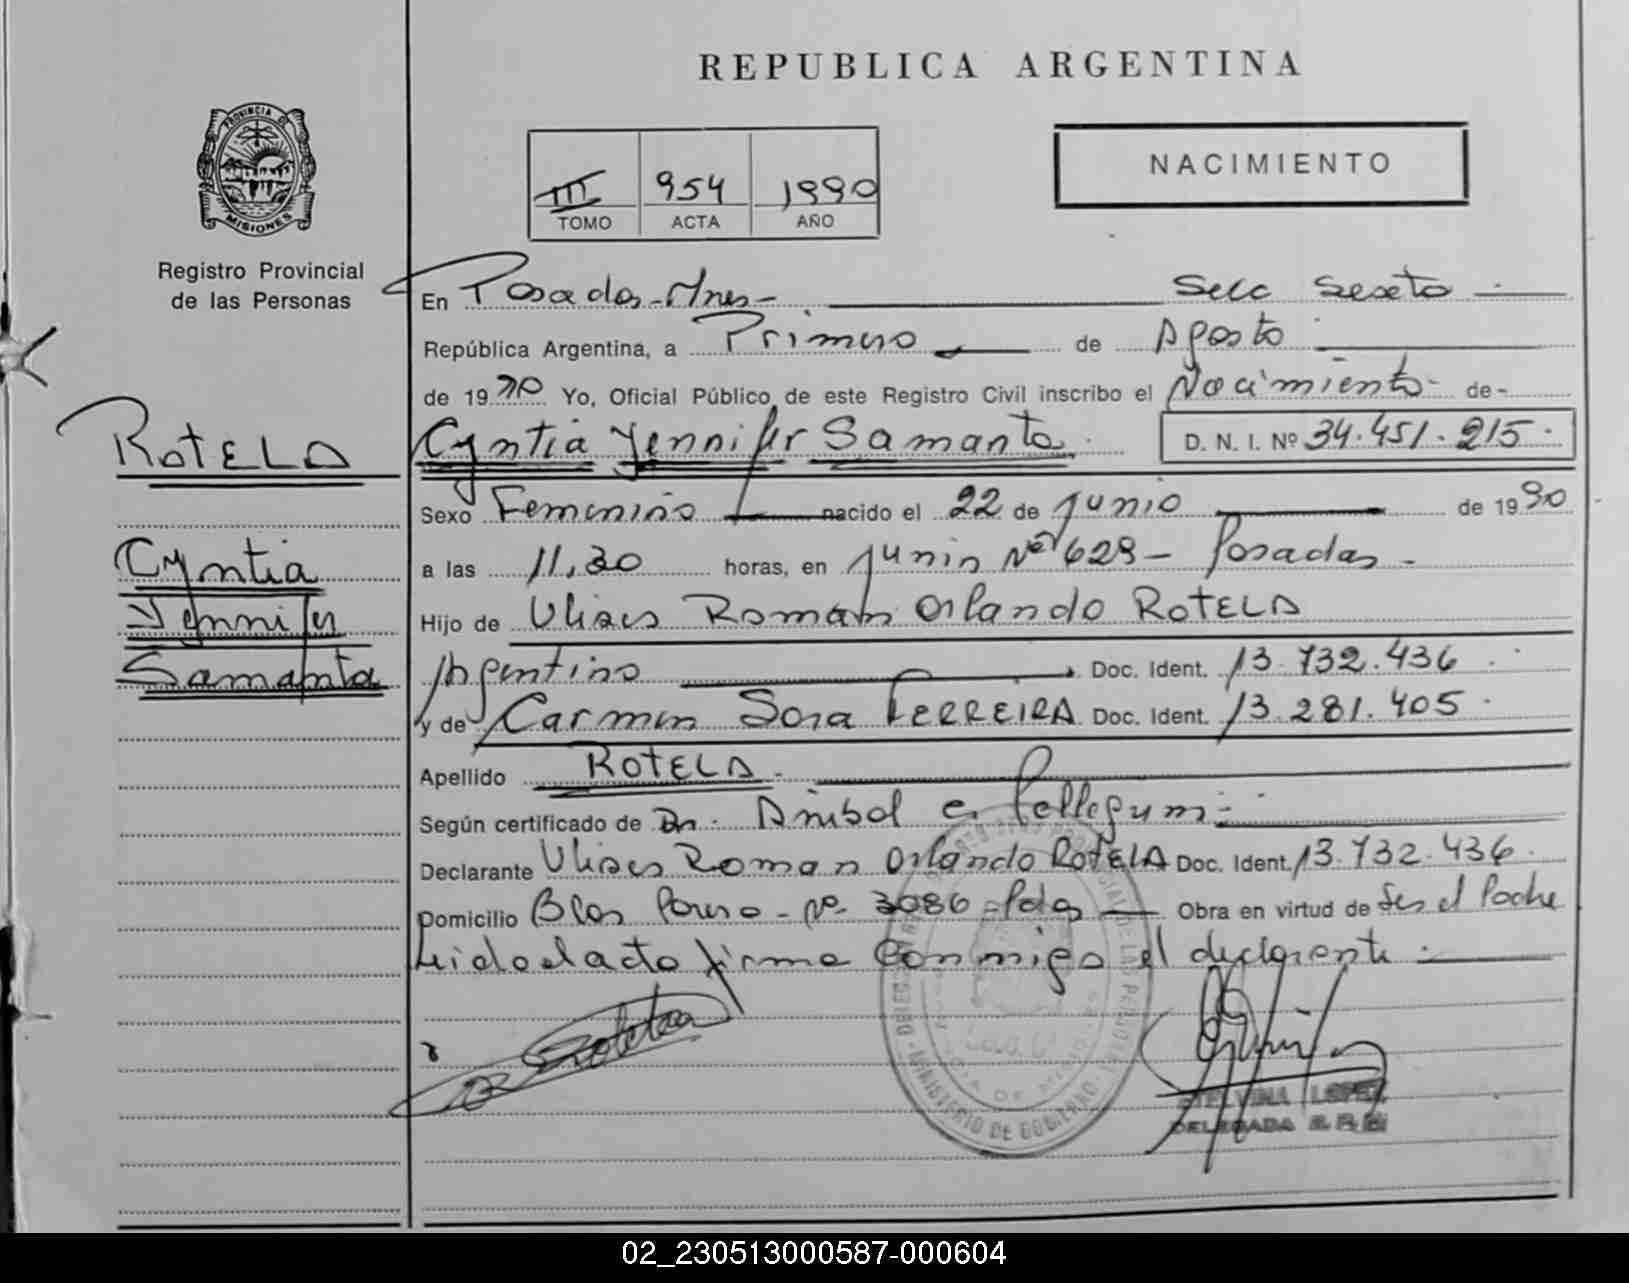 REPUBLICA ARGENTINA
PROVINCIA DE
MISIONES
Registro Provincial
de las Personas
III 954 1990
TOMO ACTA AÑO
NACIMIENTO
En Posadas-Mnes- Secc Sexta
República Argentina, a Primero de Agosto
de 1990 Yo, Oficial Público de este Registro Civil inscribo el Nacimiento- de-
ROTELA
Cyntia Yennifer Samanta
D. N. I. Nº 34.451.215.
Sexo Femenino nacido el 22 de Junio de 1990
Cyntia
Yennifer
Samanta
a las 11,30 horas, en Junin Nº 629- Posadas-
Hijo de Ulises Roman Orlando ROTELA
Argentino Doc. Ident. 13.732.436
y de Carmen Sosa FERREIRA Doc. Ident. 13.281.405
Apellido ROTELA
Según certificado de Dr. Anibal e.
Declarante Ulises Roman Orlando ROTELA Doc. Ident. 13.732.436
Domicilio Blas Nº 3086 Pdas Obra en virtud de Ser el Padre
Leido el acto firma conmigo el declarante
MINISTERIO DE GOBIERNO
LOPEZ
DELEGADA
02_230513000587-000604